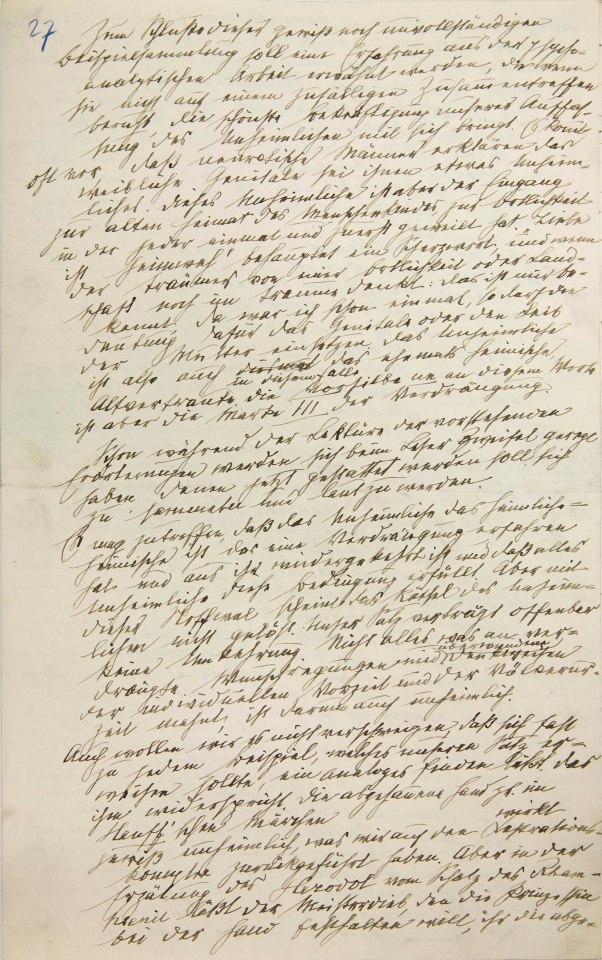 27
Zum Schluße dieser gewiß noch unvollständigen
Beispielsammlung soll eine Erfahrung aus der psycho-
analytischen Arbeit erwähnt werden, die wenn
sie nicht auf einem zufälligen Zusammentreffen
beruht, die schönste Bekräftigung unserer Auffas-
sung des Unheimlichen mit sich bringt. Es kommt
oft vor, daß neurotische Männer erklären das
weibliche Genitale sei ihnen etwas unheim-
liches. Dieses Unheimliche ist aber der Eingang
zur alten Heimat des Menschenkindes zur Örtlichkeit
in der jeder einmal und zuerst geweilt hat. Liebe
ist Heimweh, behauptet ein Scherzwort, und wenn
der Träumer von einer Örtlichkeit oder Land-
schaft noch im Traume denkt: das ist mir be-
kannt, da war ich schon einmal, so darf die
Deutung dafür das Genitale oder den Leib
der Mutter einsetzen. Das Unheimliche
ist also auch das ehemals heimische
in diesem Falle
Altvertraute, die Vorsilbe un an diesem Worte
ist aber die Marke der Verdrängung.
III
Schon während der Lektüre der vorstehenden
Erörterungen werden sich beim Leser Zweifel geregt
haben denen jetzt gestattet werden soll sich
zu sammeln und laut zu werden.
Es mag zutreffen, daß das Unheimliche das Heimliche-
heimische ist das eine Verdrängung erfahren
hat und aus ihr wiedergekehrt ist und daß alles
unheimliche diese Bedingung erfüllt. Aber mit
dieser Stoffwahl scheint das Rätsel des Unheim-
lichen nicht gelöst. Unser Satz verträgt offenbar
keine Umkehrung. Nicht alles was an ver-
drängte Wunschregungen und
überwundene Denkweisen
der individuellen Vorzeit und der Völkerur-
zeit mahnt, ist darum auch unheimlich.
Auch wollen wir es nicht verschweigen, daß sich fast
zu jedem Beispiel, welches unseren Satz er-
weisen sollte, ein analoges finden läßt das
ihm widerspricht. Die abgehauene Hand zB. im
Hauff'schen Märchen wirkt
gewiß unheimlich, was wir auf den Kastrations-
komplex zurückgeführt haben. Aber in der
Erzälung des Herodot vom Schatz des Rhamp-
senit läßt der Meisterdieb, den die Prinzessin
bei der Hand festhalten will, ihr die abge-